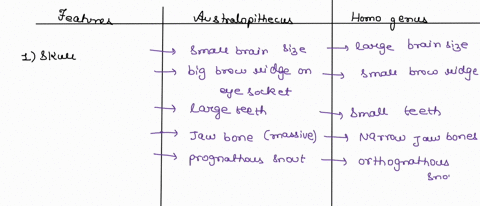 Features Australopithecus Homo genus
1) Skull → small brain size → large brain size
→ big brow ridge on → small brow ridge
eye socket
→ Large teeth → small teeth
→ Jaw bone (massive) → Narrow jaw bones
→ prognathous snout → orthognathous
sno